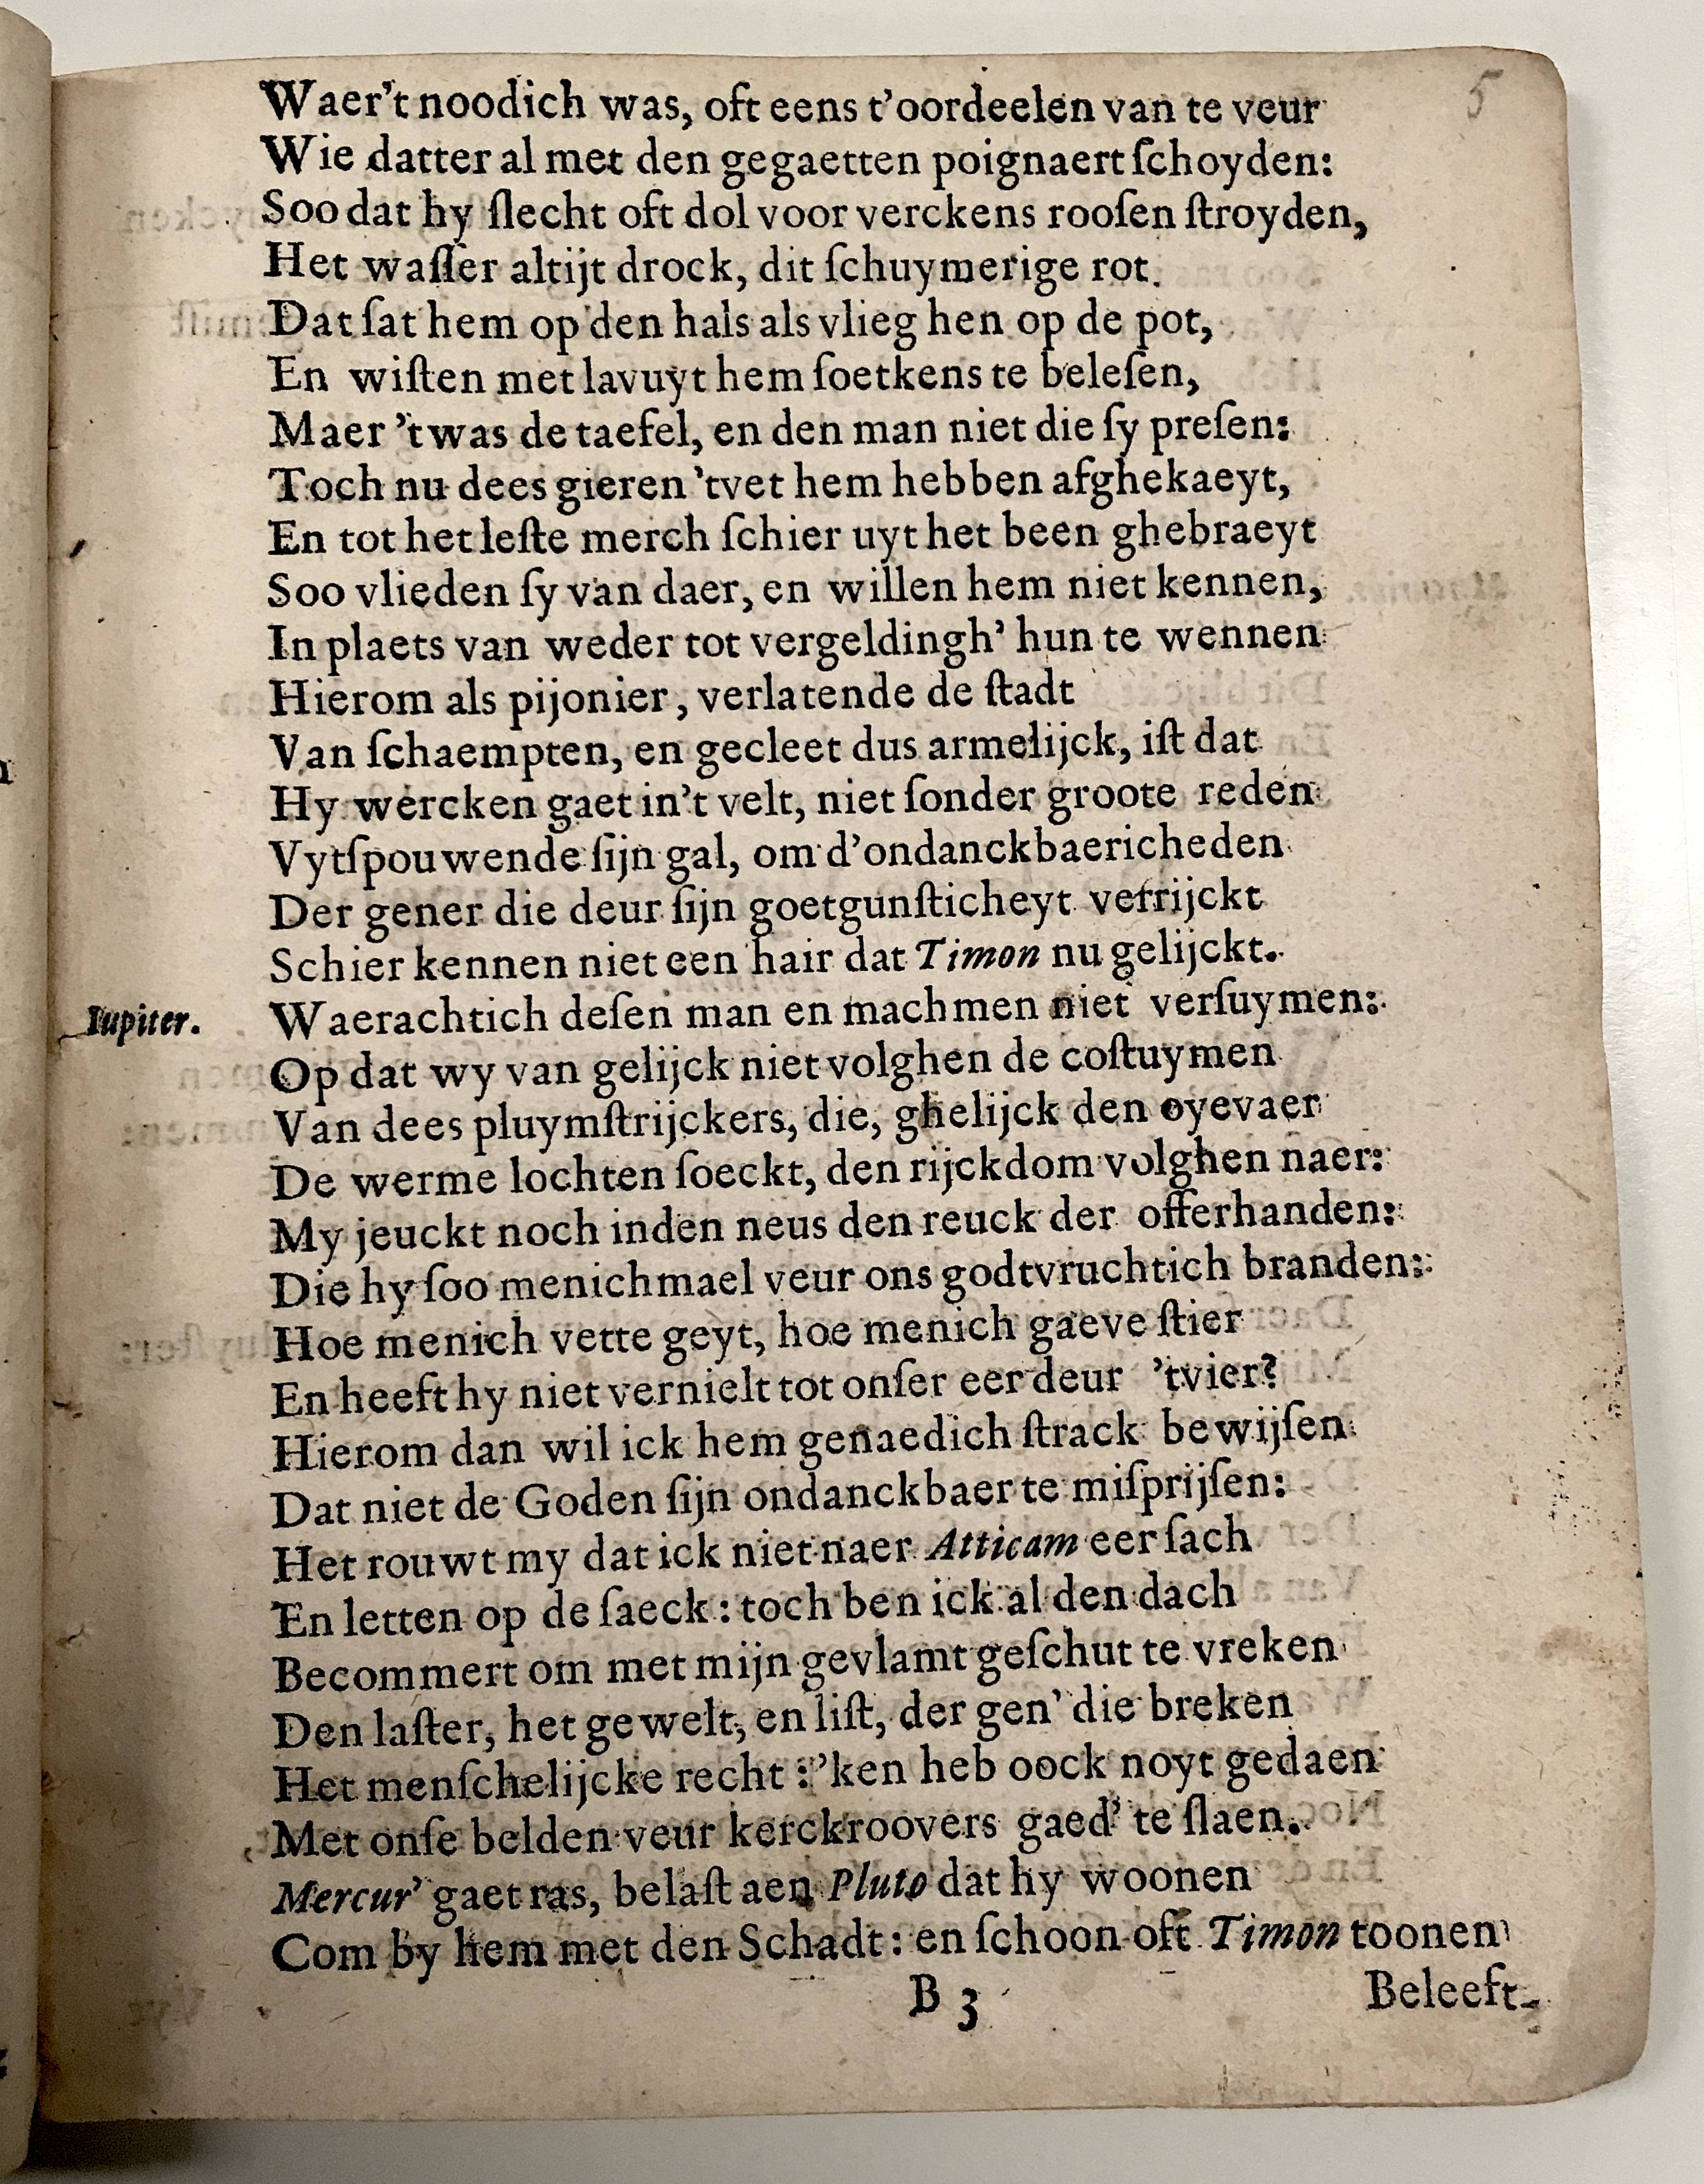 5
Waer't noodich was, oft eens t'oordeelen van te veur
Wie datter al met den gegaetten poignaert ſchoyden:
Soo dat hy ſlecht oft dol voor verckens rooſen ſtroyden,
Het waſſer altijt drock, dit ſchuymerige rot.
Dat ſat hem op den hals als vlieg hen op de pot,
En wiſten met lavuyt hem ſoetkens te beleſen,
Maer 'twas de taefel, en den man niet die ſy preſen:
Toch nu dees gieren 'tvet hem hebben afghekaeyt,
En tot het leſte merch ſchier uyt het been ghebraeyt
Soo vlieden ſy van daer, en willen hem niet kennen,
In plaets van weder tot vergeldingh' hun te wennen
Hierom als pijonier, verlatende de ſtadt
Van ſchaempten, en gecleet dus armelijck, iſt dat
Hy wercken gaet in't velt, niet ſonder groote reden
Vytſpouwende ſijn gal, om d'ondanckbaericheden
Der gener die deur ſijn goetgunſticheyt verrijckt
Schier kennen niet een hair dat Timon nu gelijckt.
Iupiter. Waerachtich deſen man en machmen niet verſuymen:
Op dat wy van gelijck niet volghen de coſtuymen
Van dees pluymſtrijckers, die, ghelijck den oyevaer
De werme lochten ſoeckt, den rijckdom volghen naer:
My jeuckt noch inden neus den reuck der offerhanden:
Die hy ſoo menichmael veur ons godtvruchtich branden:
Hoe menich vette geyt, hoe menich gaeve ſtier
En heeft hy niet vernielt tot onſer eer deur 'tvier?
Hierom dan wil ick hem genaedich ſtrack bewijſen
Dat niet de Goden ſijn ondanckbaer te miſprijſen:
Het rouwt my dat ick niet naer Atticam eer ſach
En letten op de ſaeck: toch ben ick al den dach
Becommert om met mijn gevlamt geſchut te vreken
Den laſter, het gewelt, en liſt, der gen' die breken
Het menſchelijcke recht: 'ken heb oock noyt gedaen
Met onſe belden veur kerckroovers gaed' te ſlaen.
Mercur' gaet ras, belaſt aen Pluto dat hy woonen
Com by hem met den Schadt: en ſchoon oft Timon toonen
B 3 Beleeft-